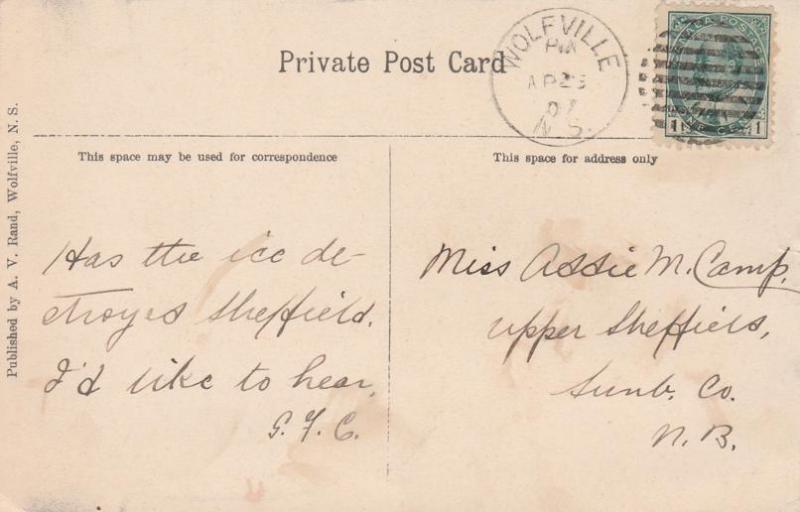 Private Post Card
WOLFVILLE
PM
AP 23
07
N.S.
CANADA POSTAGE
1 ONE CENT 1
This space may be used for correspondence
This space for address only
Published by A. V. Rand, Wolfville, N. S.
Has the ice de-
stroyed Sheffield.
I'd like to hear,
G. F. C.
Miss Assie M. Camp,
Upper Sheffield,
Sunb. Co.
N. B.